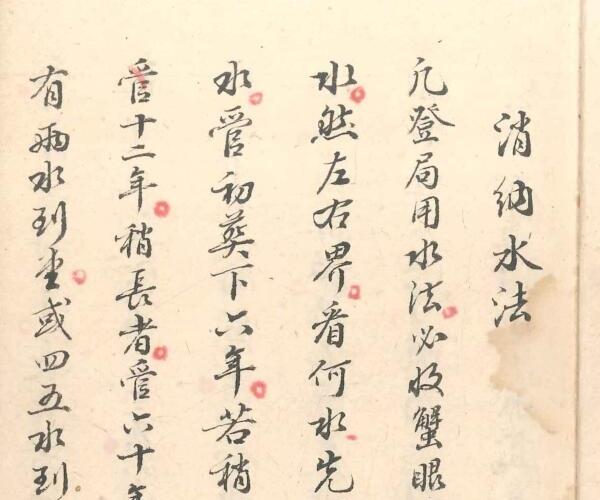 消納水法
凡登局用水法必收蟹眼
水然左右界看何水先
水管初葬下六年若稍
管十二年稍長者管六十年
有兩水到堂或四五水到